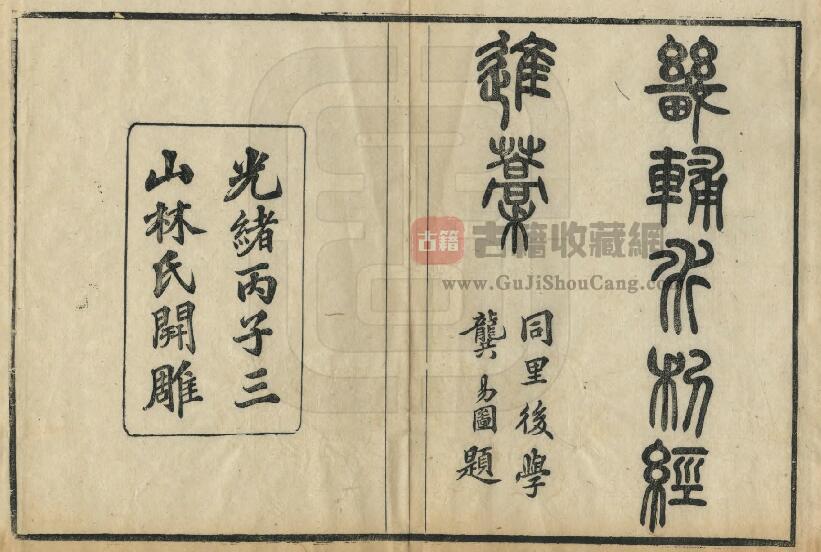 畿輔水利經
進藁
同里後學
龔易圖題
光緒丙子三
山林氏開雕
古籍
古籍收藏網
www.GuJiShouCang.com